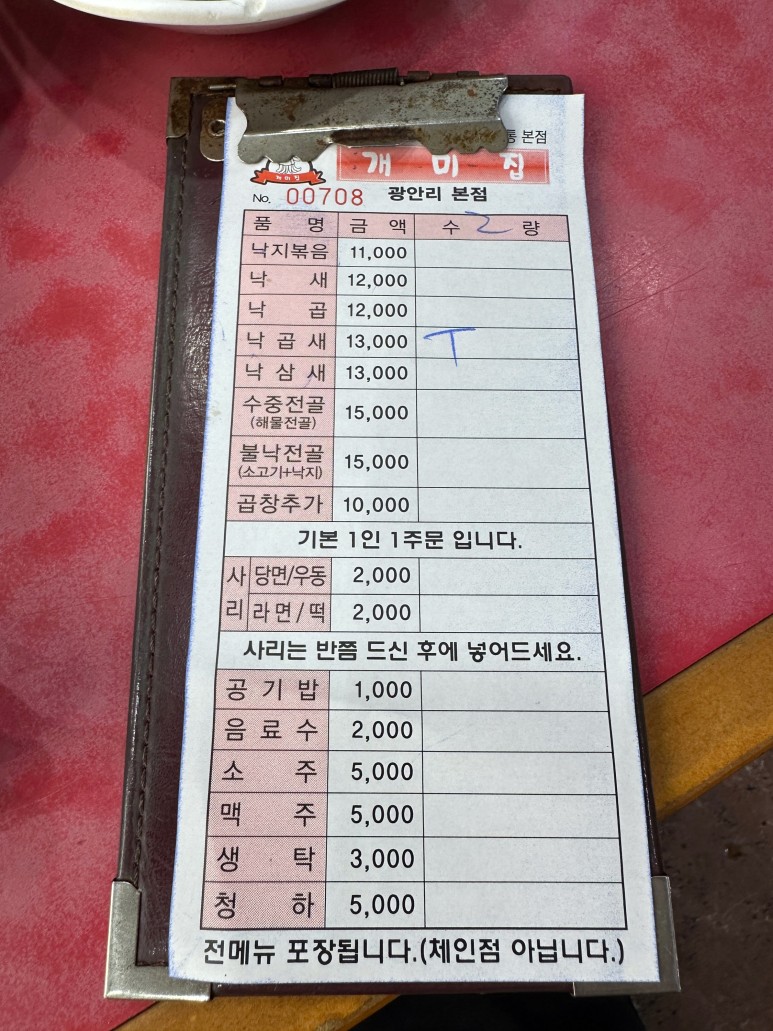 통 본점
개미집
개 미 집
No. 00708 광안리 본점
품 명 금 액 수 2 량
낙지볶음 11,000
낙 새 12,000
낙 곱 12,000
낙 곱 새 13,000 T
낙 삼 새 13,000
수중전골 15,000
(해물전골)
불낙전골 15,000
(소고기+낙지)
곱창추가 10,000
기본 1인 1주문 입니다.
사리 당면/우동 2,000
라면/떡 2,000
사리는 반쯤 드신 후에 넣어드세요.
공 기 밥 1,000
음 료 수 2,000
소 주 5,000
맥 주 5,000
생 탁 3,000
청 하 5,000
전메뉴 포장됩니다.(체인점 아닙니다.)